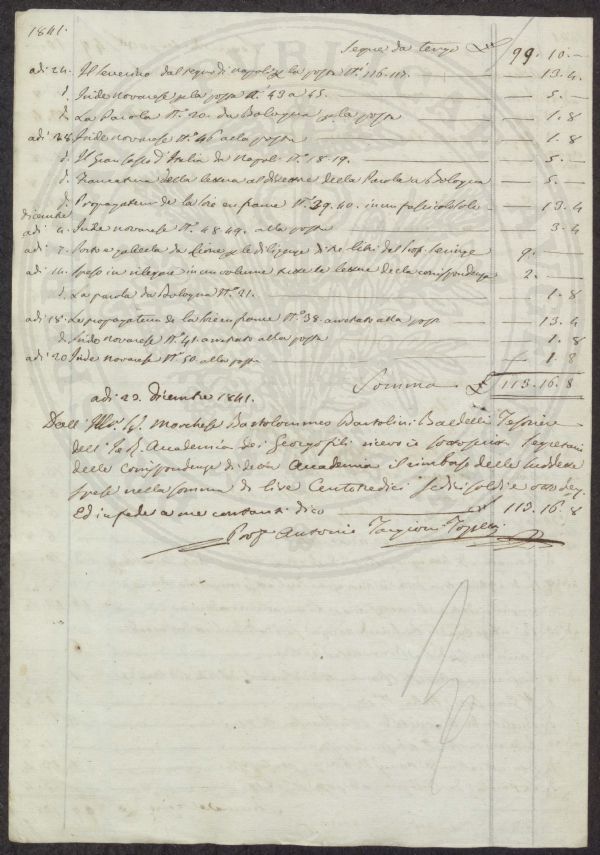 1841.
Segue da tergo £ 99. 10. —
adi 24. Il Severino dal regno di napoli p la posta N.º 116-117. — 13. 4
d. Iride novarese p la posta N.º 43 a 45. — 5. —
d. La Parola N.º 20. da Bologna p la posta — 1. 8
adi 28. Iride novarese N.º 46 alla posta — 1. 8
d. Il Gran Sasso d'Italia da Napoli N.º 18-19. — 5. —
d. Francatura della lettera al direttore della Parola a Bologna — 5. —
d. Propagateur de la Soie en france N.º 39. 40. in un fascicolo solo — 13. 4
dicembre
adi 4. Iride novarese N.º 48 49. alla posta — 3. 4
adi 7. Porto e gabella da Lione p le diligenze di tre libri del 9. —
adi 14. speso in rilegare in un volume tutte le lettere della corrispondenza 2. —
d. La parola da Bologna N.º 21. — 1. 8
adi 18. Le propagateur de la Soie en france N.º 38. arretrato alla posta — 13. 4
d. Iride Novarese N.º 41. arretrato alla posta — 1. 8
adi 20 Iride Novarese N.º 50 alla posta — 1. 8
Somma £ 113. 16. 8
adi 22. Dicembre 1841.
Dall' Ill.º Sig. Marchese Bartolommeo Bartolini Baldelli Tesoriere
dell' I. e R. Accademia dei Georgofili ricevo io sottoscritto Segretario
delle corrispondenze di detta Accademia il rimborso delle suddette
spese nella somma di lire Centotredici sedici soldi e otto den.
Ed in fede a me contanti dico — £ 113. 16. 8
Prof. Antonio Targioni Tozzetti